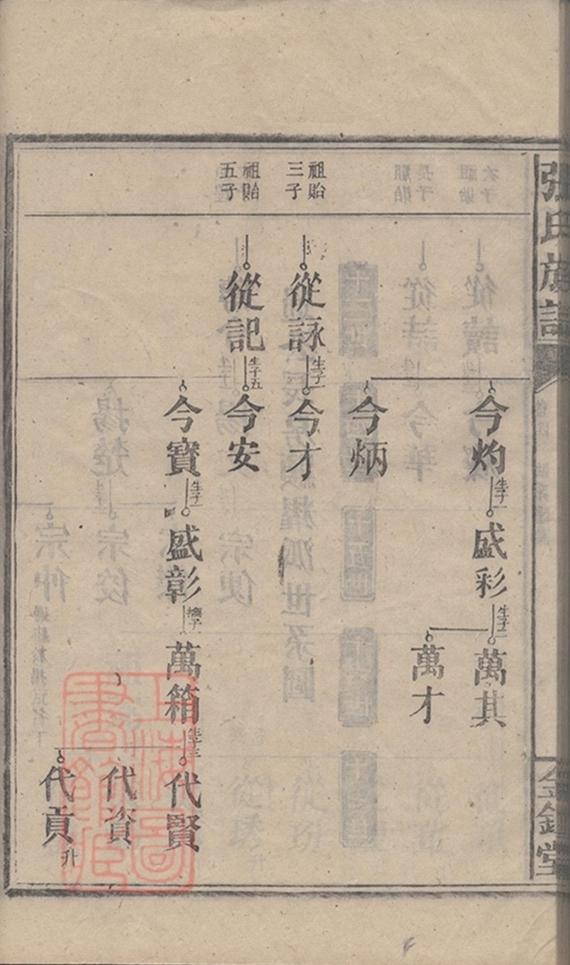 張氏族譜
金鑑堂
今灼
生子一
盛彩
生子二
萬其
萬才
今炳
祖貽
三子
從詠
生子一
今才
祖貽
五子
從記
生子五
今安
今寶
生子一
盛彰
萬箱
生子三
代賢
代資
代貢
升
上海圖書館藏